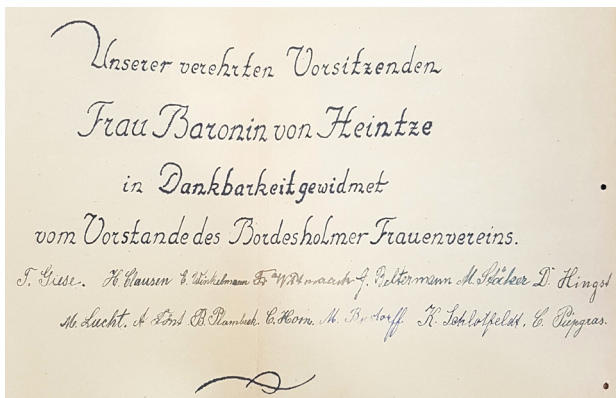 Unserer verehrten Vorsitzenden
Frau Baronin von Heintze
in Dankbarkeit gewidmet
vom Vorstande des Bordesholmer Frauenvereins.
T. Giese. H. Clausen E. Winkelmann Fr. G. Beltermann M. Stölzer D. Hingst
M. Lucht. A B. Plambeck. C. Horn. M. K. Schlotfeldt, C. Piepgras.